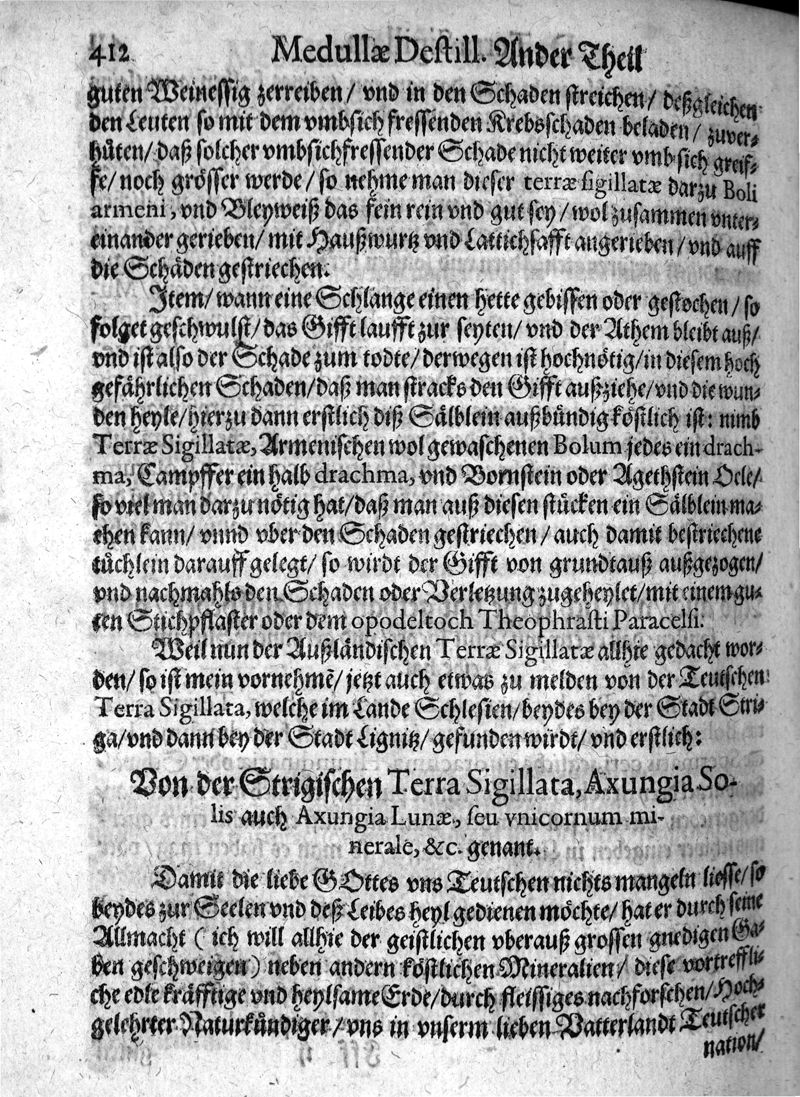 412 Medullæ Destill. Ander Theil
guten Weinessig zerreiben/ vnd in den Schaden streichen/ deßgleichen
den Leuten so mit dem vmbsich fressenden Krebsschaden beladen/ zuver-
hüten/ daß solcher vmbsichfressender Schade nicht weiter vmbsich greif-
fe/ noch grösser werde/ so nehme man dieser terræ sigillatæ darzu Boli
armeni, vnd Bleyweiß das fein rein vnd gut sey/ wol zusammen vnter-
einander gerieben/ mit Haußwurtz vnd Lattichsafft angerieben/ vnd auff
die Schäden gestriechen.
Item/ wann eine Schlange einen hette gebissen oder gestochen/ so
folget geschwulst/ das Gifft laufft zur seyten/ vnd der Athem bleibt auß/
vnd ist also der Schade zum todte/ derwegen ist hochnötig/ in diesem hoch
gefährlichen Schaden/ daß man stracks den Gifft außziehe/ vnd die wun-
den heyle/ hierzu dann erstlich diß Sälblein außbündig köstlich ist: nimb
Terræ Sigillatæ, Armenischen wol gewaschenen Bolum jedes ein drach-
ma, Campffer ein halb drachma, vnd Bornstein oder Agethstein Oele/
so viel man darzu nötig hat/ daß man auß diesen stücken ein Sälblein ma-
chen kann/ vnnd vber den Schaden gestriechen/ auch damit bestriechene
tüchlein darauff gelegt/ so wirdt der Gifft von grundtauß außgezogen/
vnd nachmahls den Schaden oder Verletzung zugeheylet/ mit einem gu-
ten Stichpflaster oder dem opodeltoch Theophrasti Paracelsi.
Weil nun der Außländischen Terræ Sigillatæ allhie gedacht wor-
den/ so ist mein vornehmē/ jetzt auch etwas zu melden von der Teutschen
Terra Sigillata, welche im Lande Schlesien/ beydes bey der Stadt Stri-
ga/ vnd dann bey der Stadt Lignitz/ gefunden wirdt/ vnd erstlich:
Von der Strigischen Terra Sigillata, Axungia So-
lis auch Axungia Lunæ, seu vnicornum mi-
nerale, &c. genant.
Damit die liebe GOttes vns Teutschen nichts mangeln liesse/ so
beydes zur Seelen vnd deß Leibes heyl gedienen möchte/ hat er durch seine
Allmacht ( ich will allhie der geistlichen vberauß grossen gnedigen Ga-
ben geschweigen) neben andern köstlichen Mineralien/ diese vortreffli-
che edle kräfftige vnd heylsame Erde/ durch fleissiges nachforschen/ Hoch-
gelehrter Naturkündiger/ vns in vnserm lieben Vatterlandt Teutscher
nation/